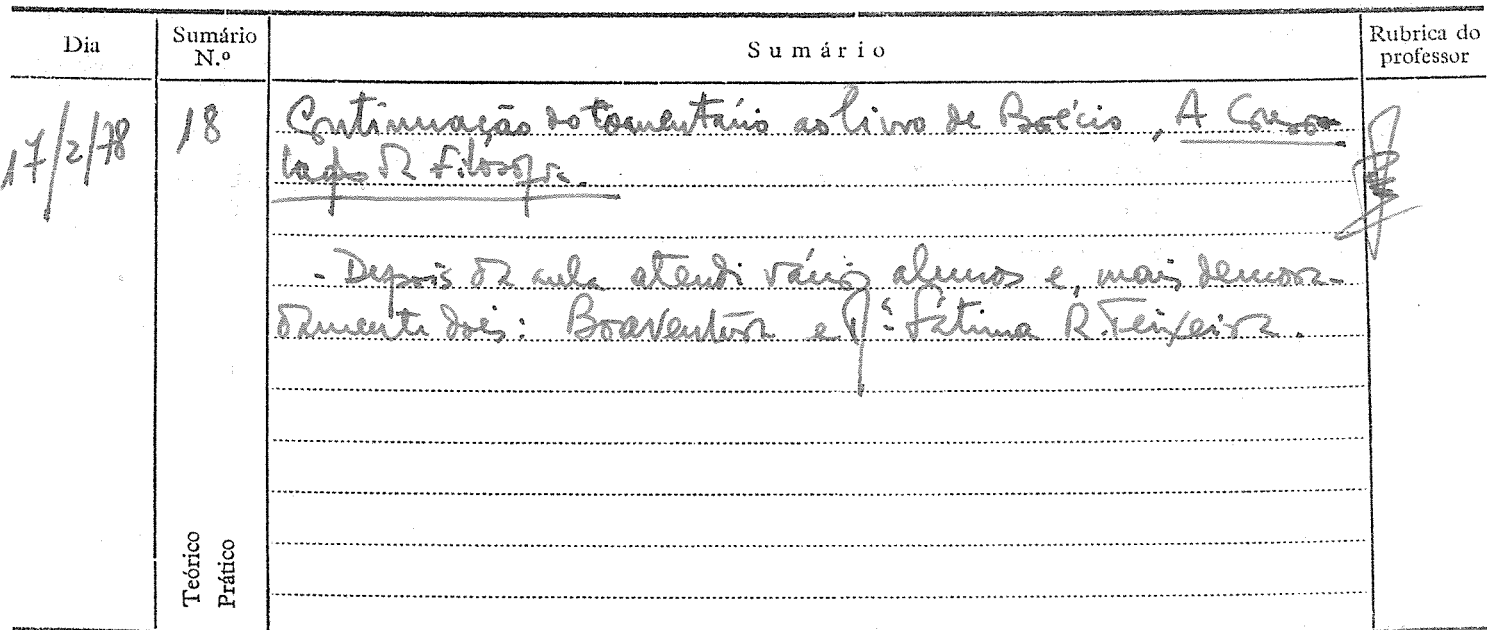 Dia Sumário N.º Sumário Rubrica do professor
17/2/78 18 Continuação do Comentário ao livro de Boécio, A Conso-
lação da Filosofia.
- Depois da aula atendi vários alunos e, mais demora-
damente dois: Boaventura e Mª Fátima R. Teixeira.
Teórico
Prático